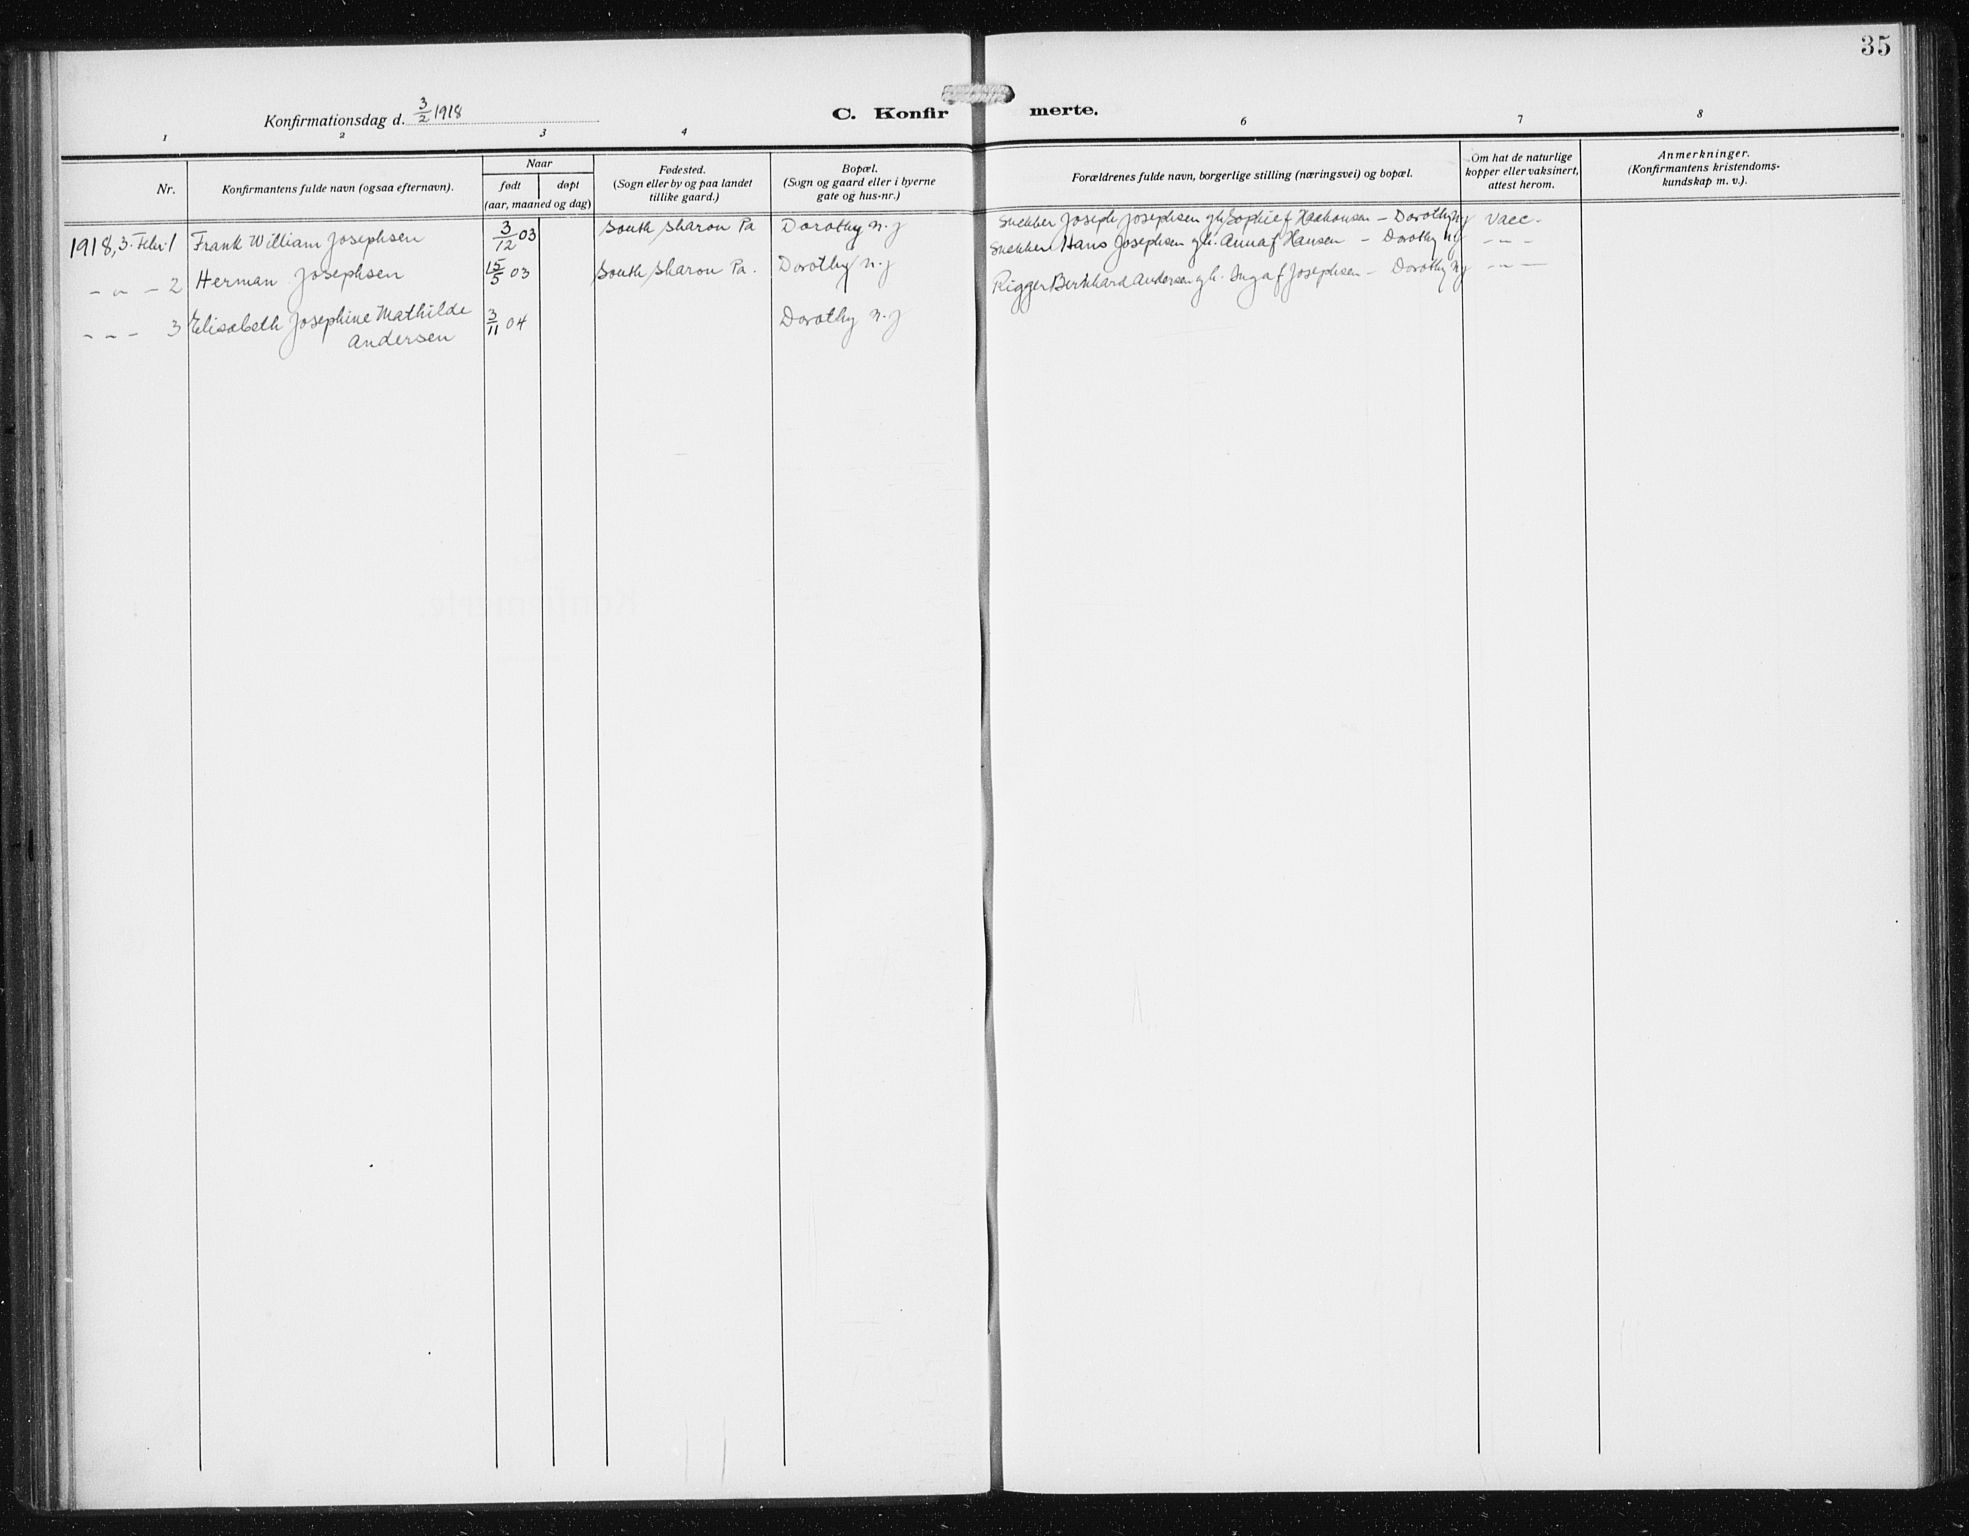 35
Konfirmationsdag d. 3/2 1918
C. Konfirmerte.
1 2 3 4 6 7 8
Nr.
Konfirmantens fulde navn (ogsaa efternavn).
Naar
født døpt
(aar, maaned og dag)
Fødested.
(Sogn eller by og paa landet
tillike gaard.)
Bopæl.
(Sogn og gaard eller i byerne
gate og hus-nr.)
Forældrenes fulde navn, borgerlige stilling (næringsvei) og bopæl.
Om hat de naturlige
kopper eller vaksinert,
attest herom.
Anmerkninger.
(Konfirmantens kristendoms-
kundskap m. v.).
1918, 3. Febr. 1 Frank William Josephsen 3/12 03 South Sharon Pa Dorothy N. J Snekker Joseph Josephsen gh. Sophie f Haakonsen - Dorothy NJ Vacc.
- " - 2 Herman Josephsen 15/5 03 South Sharon Pa. Dorothy N. J Snekker Hans Josephsen gh. Anna f Hansen - Dorothy NJ - " -
- " - 3 Elisabeth Josephine Mathilde 3/11 04 Dorothy N. J Rigger Bernhard Andersen gh. Inga f Josephsen - Dorothy NJ - " -
Andersen